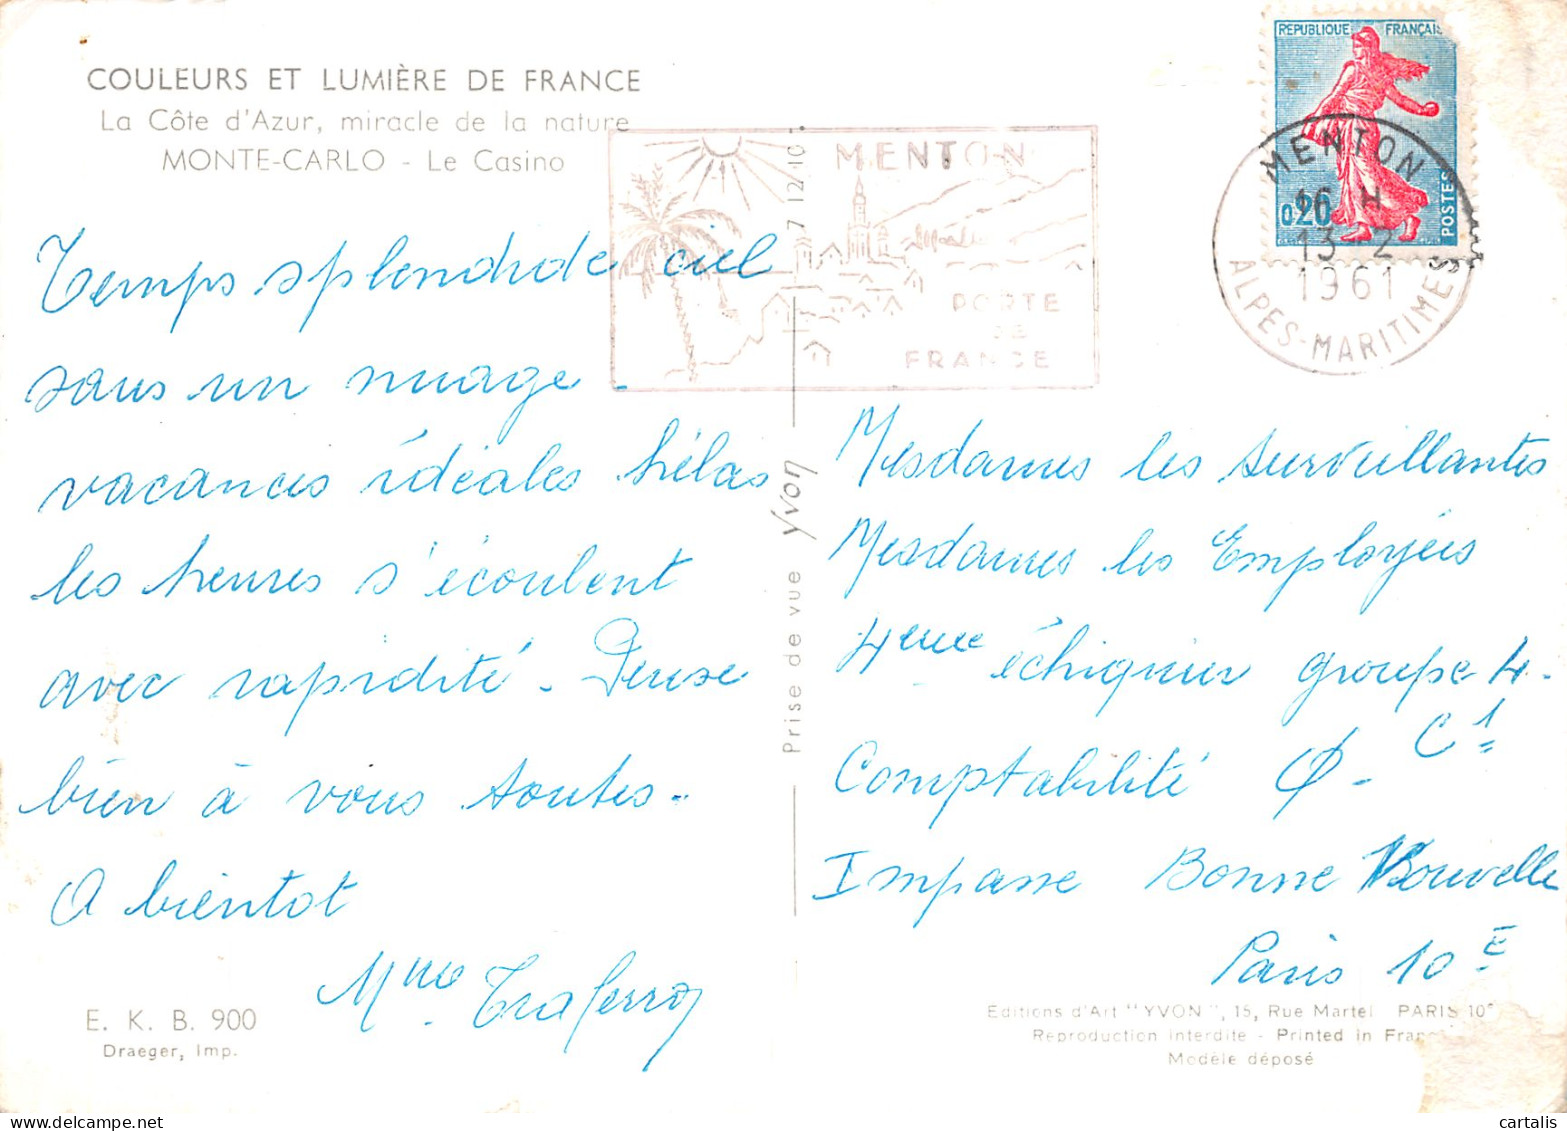 COULEURS ET LUMIÈRE DE FRANCE
La Côte d'Azur, miracle de la nature
MONTE-CARLO - Le Casino
Temps splendide ciel
sans un nuage -
vacances idéales hélas
les heures s'écoulent
avec rapidité - Pense
bien à vous toutes -
A bientot
Mme
E. K. B. 900
Draeger, Imp.
7 12 10
MENTON
PORTE
DE
FRANCE
Prise de vue Yvon
REPUBLIQUE FRANÇAIS
0,20
POSTES
MENTON
16 H
13 - 2
1961
ALPES-MARITIMES
Mesdames les Surveillantes
Mesdames les Employées
4eme échiquier groupe 4 -
Comptabilité - C 1
Impasse Bonne Nouvelle
Paris 10 E
Editions d'Art "YVON", 15, Rue Martel PARIS 10e
Reproduction interdite - Printed in Franc
Modèle déposé
cartalis